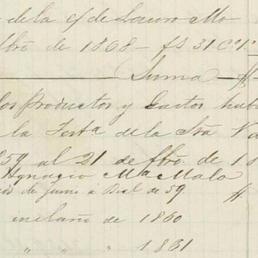 de la c/ de Lauro Mo
bro de 1868 - fs 31 Ct
Suma
los Productos y Gastos hab
la Testa de la Sra V. d
59 al 21 de fbro. de 18
Ygnacio Ma Malo
de Junio a Dic de 59
melano de 1860
" " " 1861